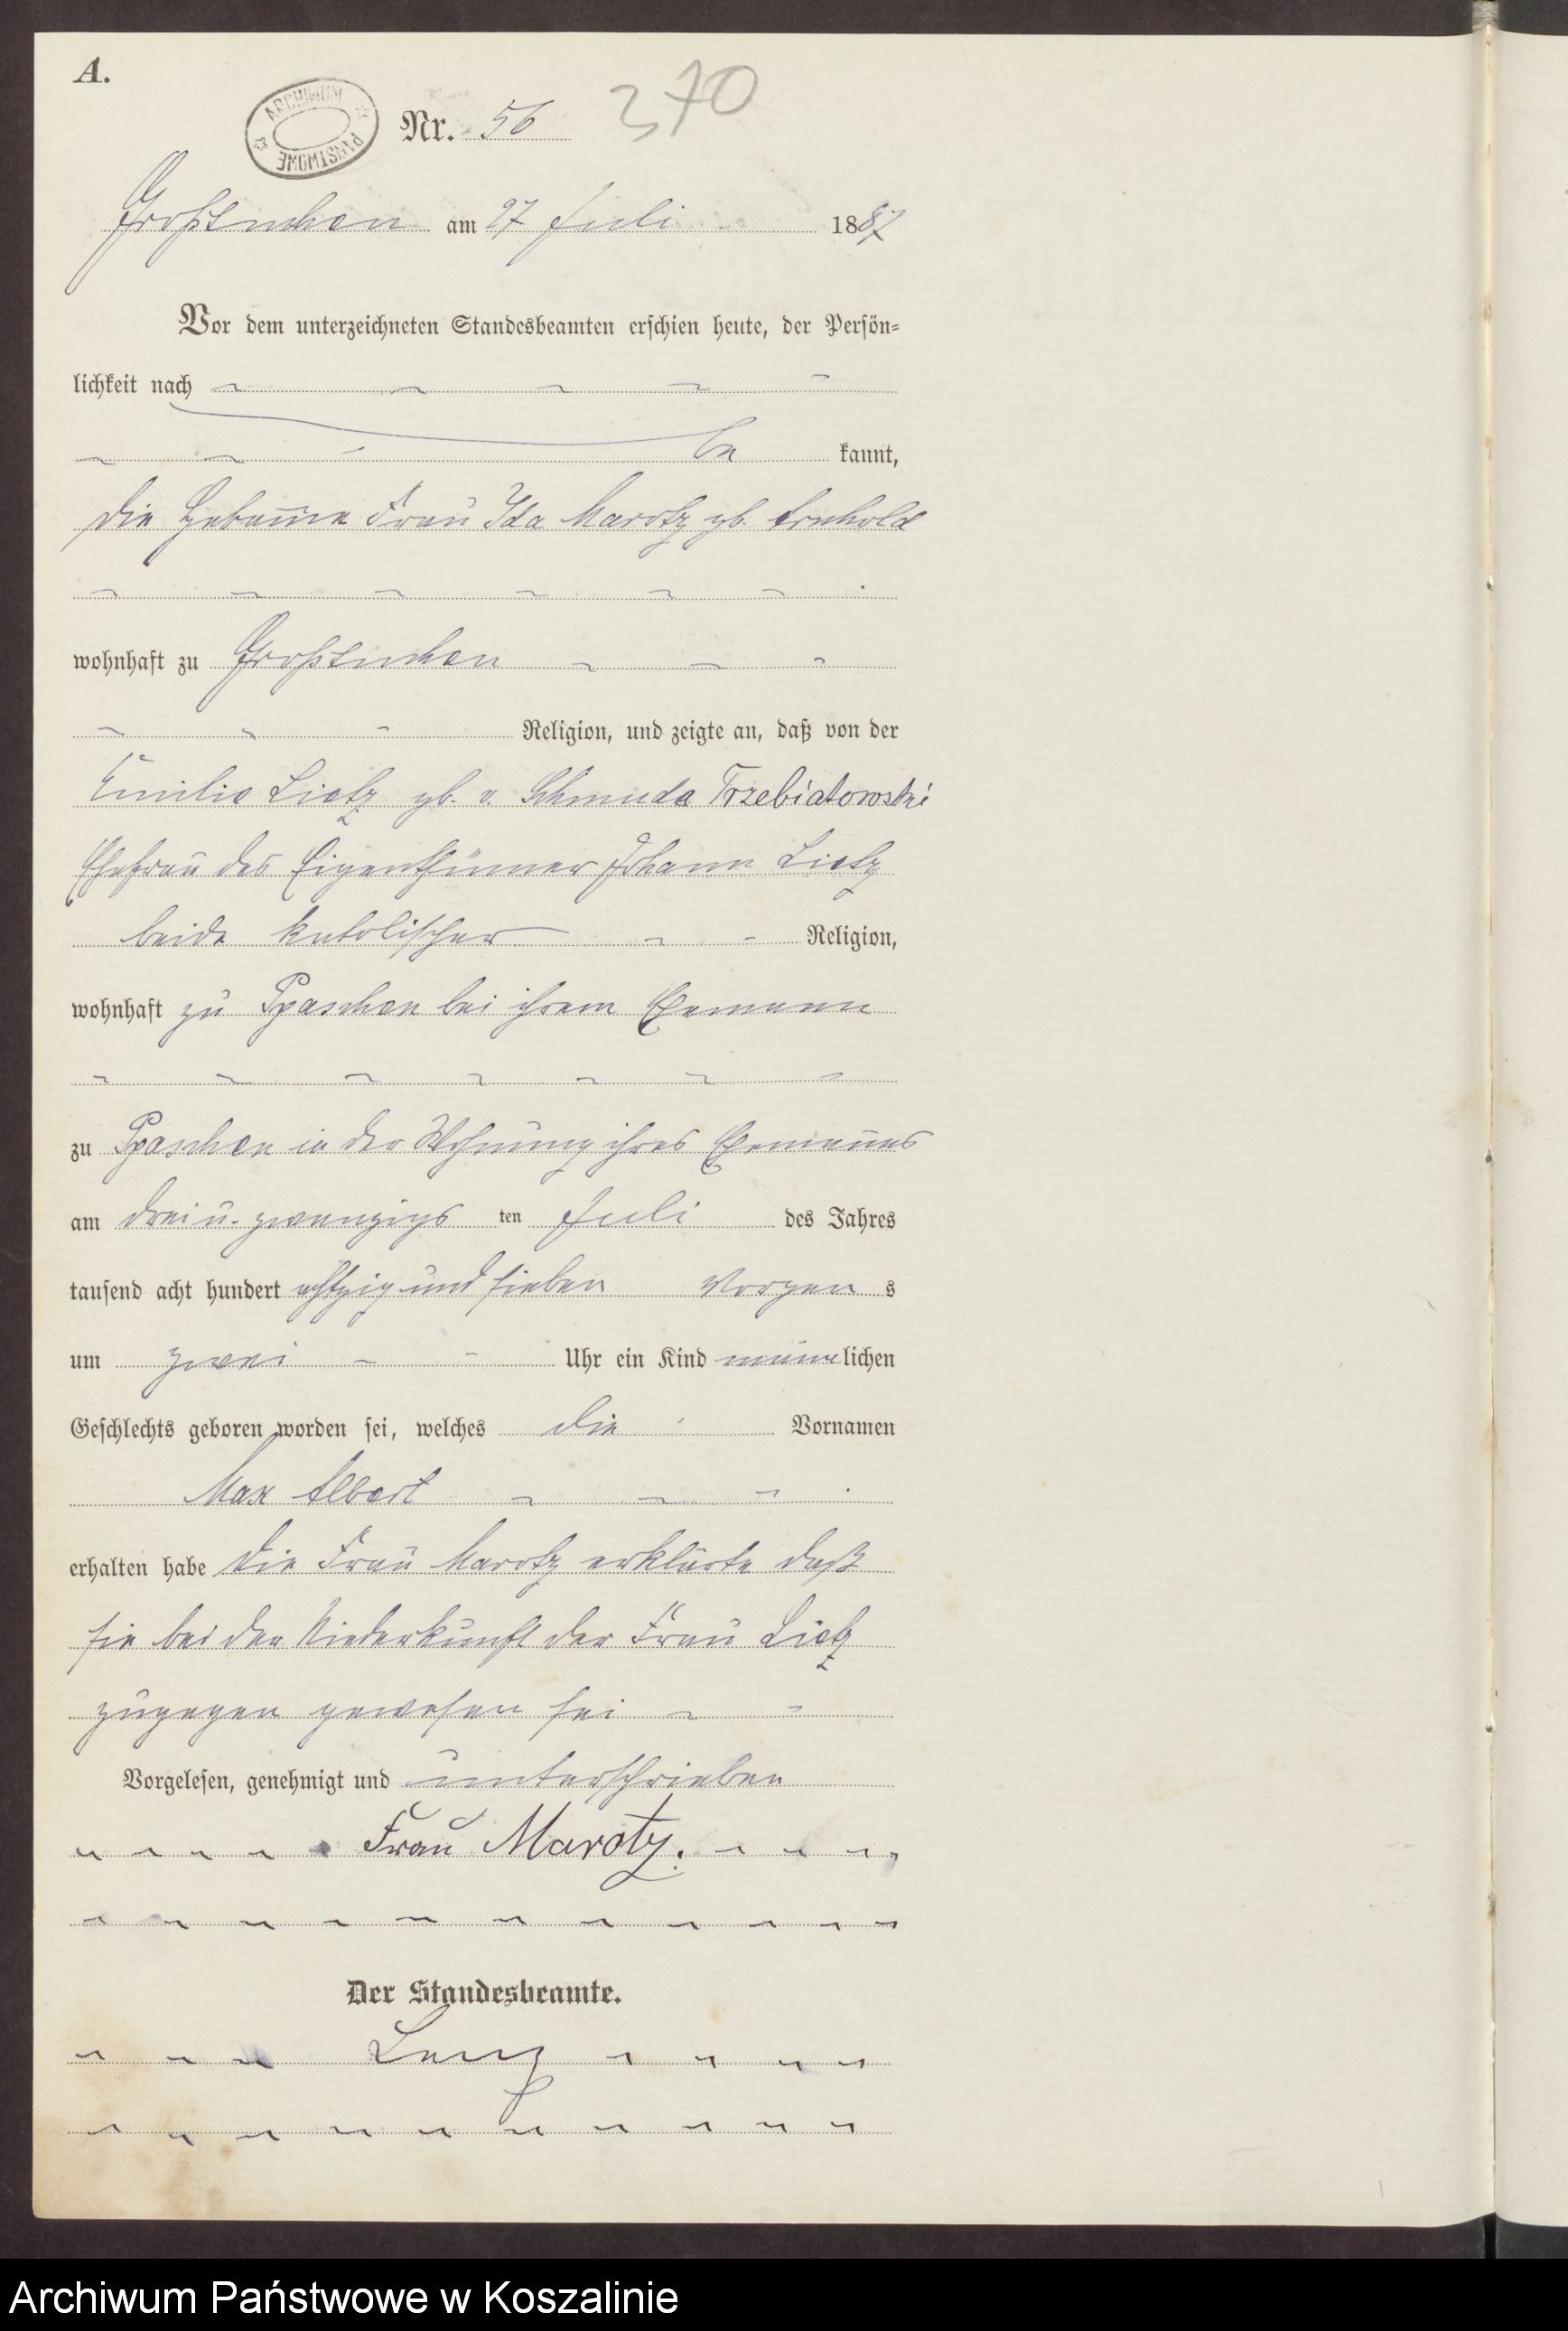 A.
ARCHIWUM PAŃSTWOWE
Nr. 56 370
Großtuchen am 27 Juli 1887
Vor dem unterzeichneten Standesbeamten erschien heute, der Persön-
lichkeit nach
be kannt,
die Hebamme Frau Ida Marotz gb. Arnhold
wohnhaft zu Großtuchen
Religion, und zeigte an, daß von der
Emilie Lietz gb. v. Schmuda Trzebiatowski
Ehefrau des Eigenthümer Johann Lietz
beide katolischer Religion,
wohnhaft zu bei ihrem Ehemann
zu in der Wohnung ihres Ehemannes
am drei u. zwanzigs ten Juli des Jahres
tausend acht hundert achtzig und sieben Morgen s
um zwei Uhr ein Kind männlichen
Geschlechts geboren worden sei, welches die Vornamen
Max Albert
erhalten habe Die Frau Marotz erklärte daß
sie bei der Niederkunft der Frau Lietz
zugegen gewesen sei
Vorgelesen, genehmigt und unterschrieben
Frau Marotz.
Der Standesbeamte.
Lenz
Archiwum Państwowe w Koszalinie